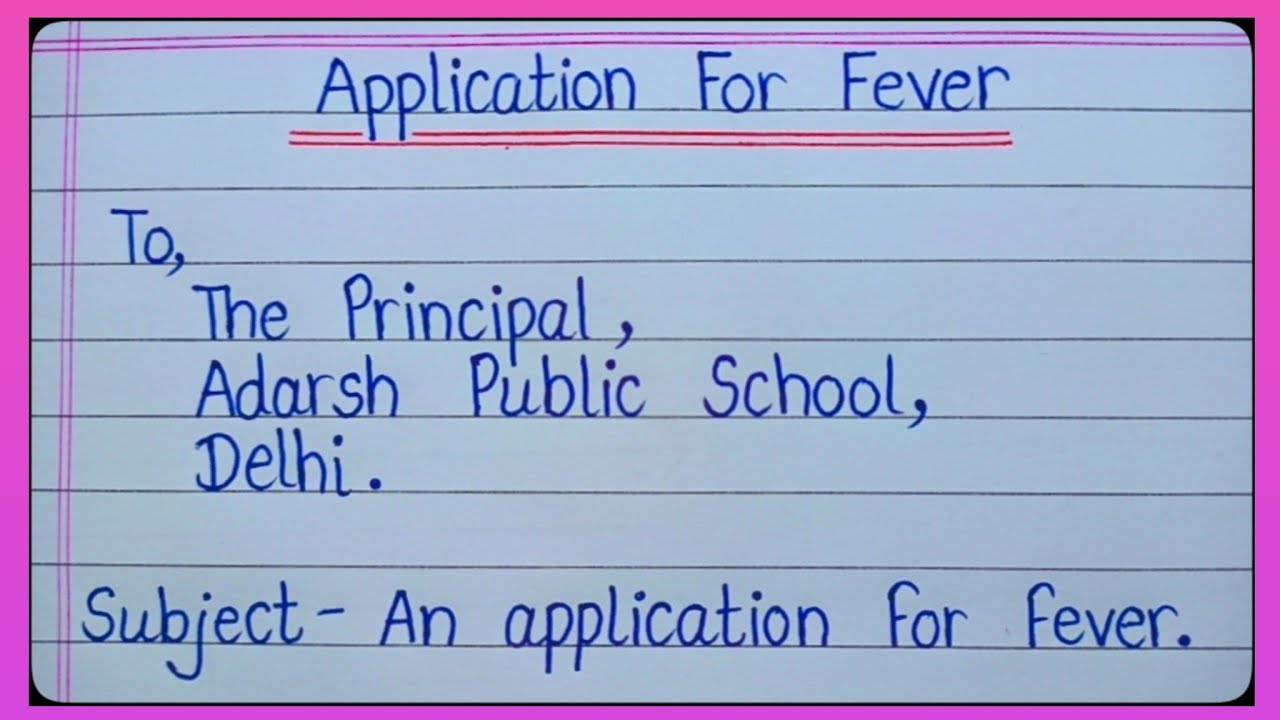 Application For Fever
To,
The Principal,
Adarsh Public School,
Delhi.
Subject - An application for fever.